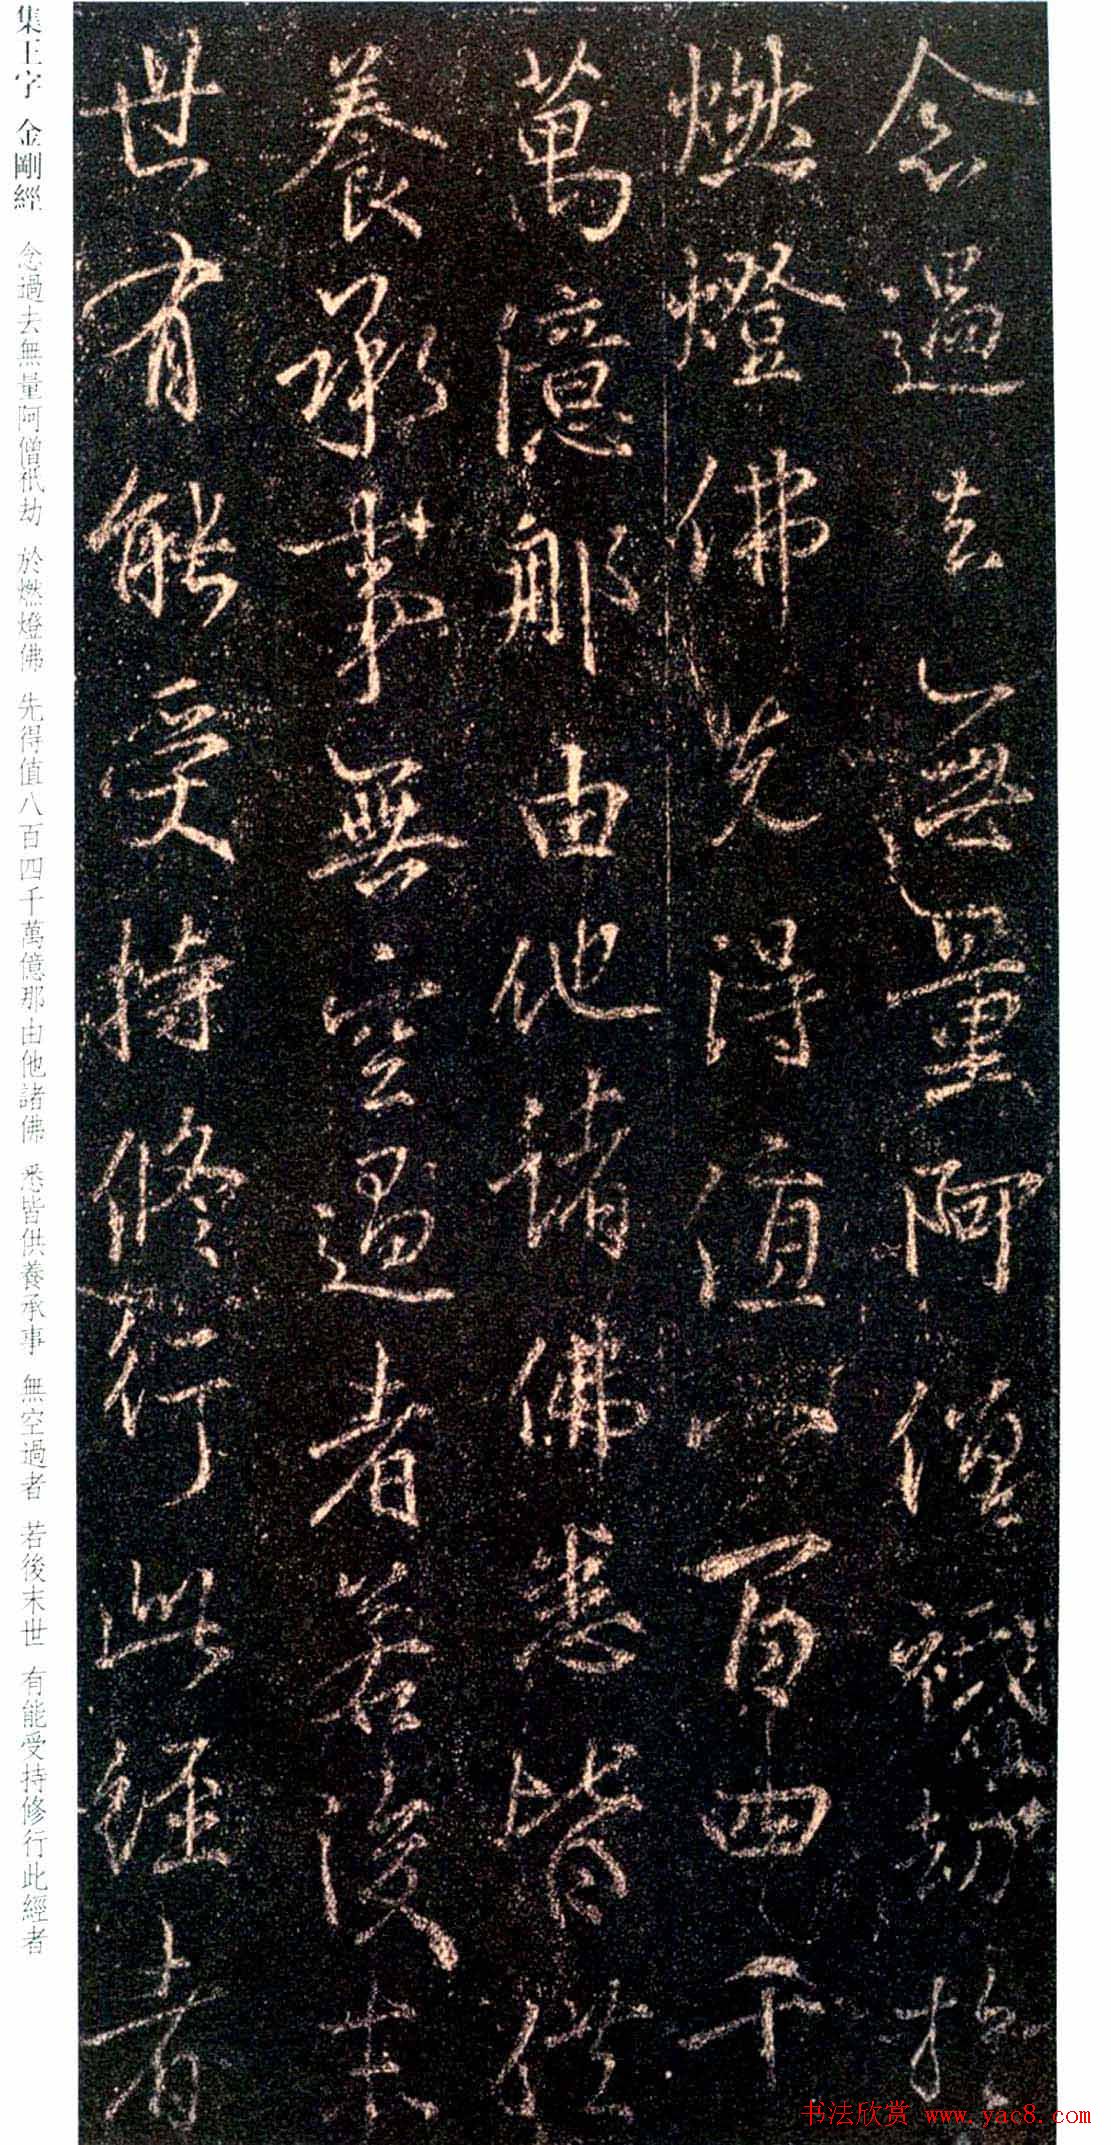 念過去無量阿僧祇劫於
燃燈佛先得值八百四千
萬億那由他諸佛悉皆供
養承事無空過者若後末
世有能受持修行此經者
集王字 金剛經 念過去無量阿僧祇劫 於燃燈佛 先得值八百四千萬億那由他諸佛 悉皆供養承事 無空過者 若後末世 有能受持修行此經者
书法欣赏 www.yac8.com